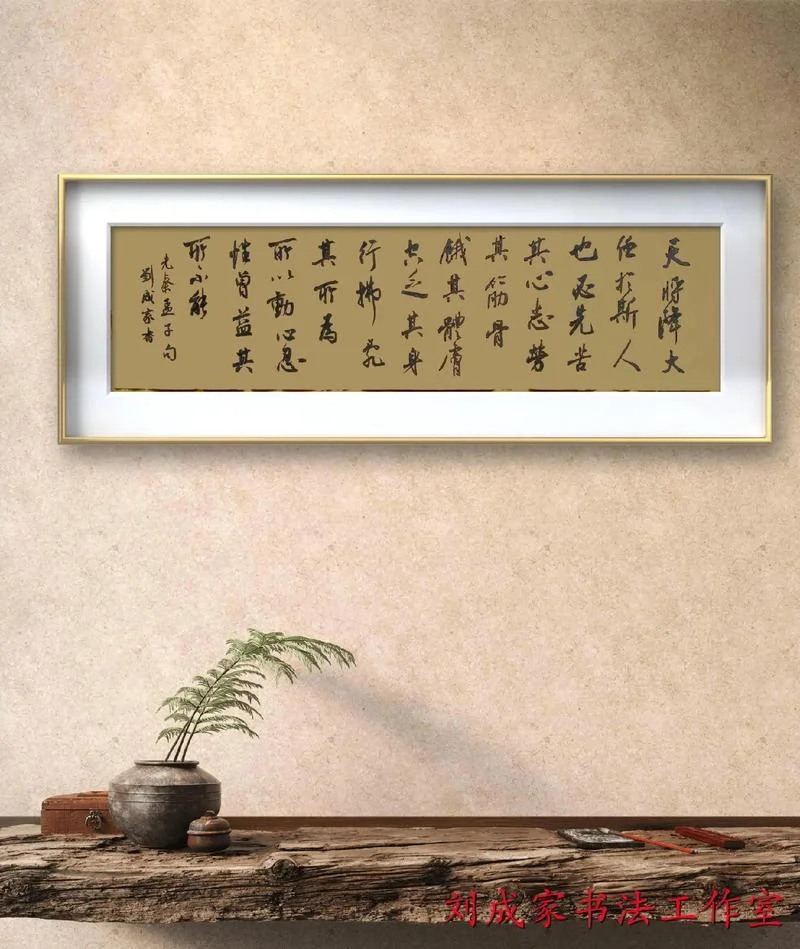 天将降大
任於斯人
也必先苦
其心志勞
其筋骨
餓其體膚
空乏其身
行拂亂
其所為
所以動心忍
性曾益其
所不能
先秦孟子句
劉成家書
刘成家书法工作室